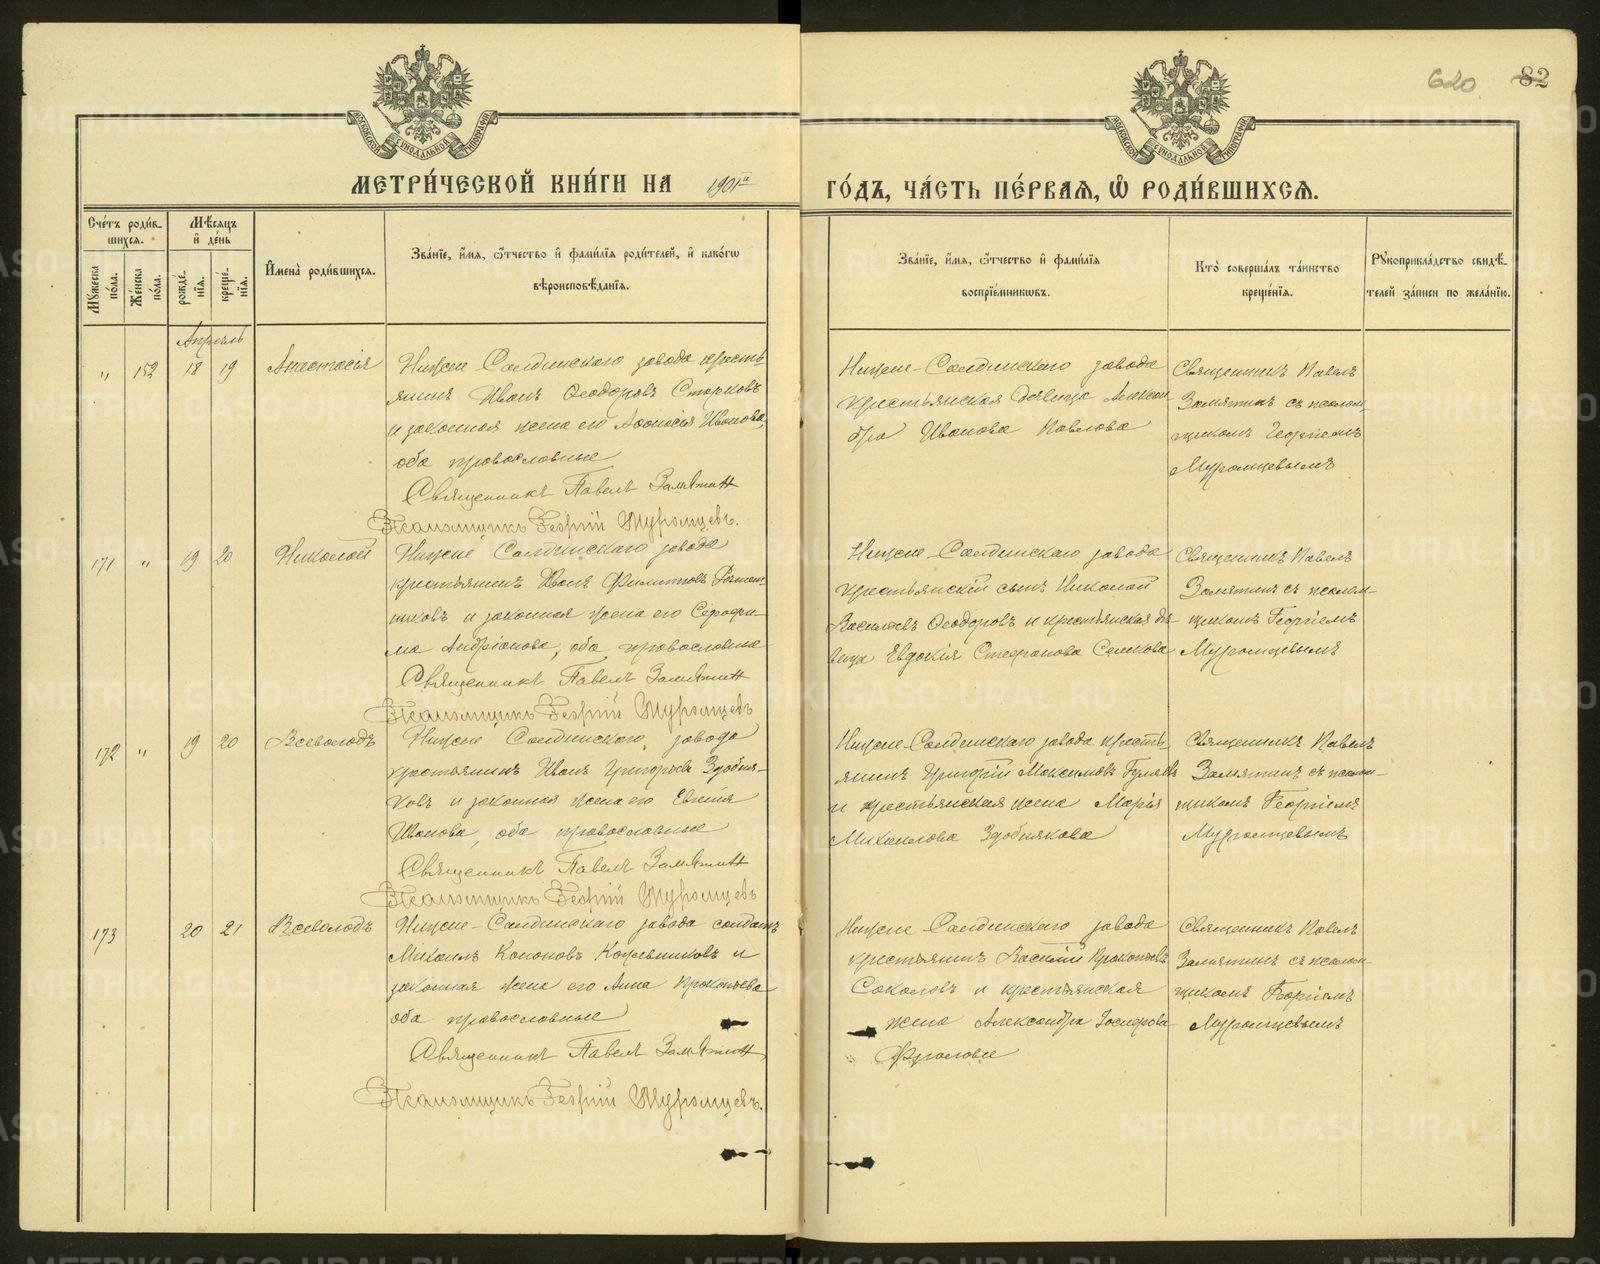 620 82
МОСКОВСКОЙ СѴНОДАЛЬНОЙ ТИПОГРАФІИ
МОСКОВСКОЙ СѴНОДАЛЬНОЙ ТИПОГРАФІИ
МЕТРИ́ЧЕСКОЙ КНИ́ГИ НА 1901й ГО́ДЪ, ЧА́СТЬ ПЕ́РВАѦ, Ѡ҆ РОДИ́ВШИХСѦ.
Сче́тъ роди́в-
шихсѧ.
Мꙋ́жеска по́ла.
Же́нска по́ла.
Мѣ́сѧцъ
и҆ де́нь
рожде́-
нїѧ.
креще́-
нїѧ.
И҆мена̀ роди́вшихсѧ.
Зва́нїе, и҆́мѧ, ѻ҆́тчество и҆ фамі́лїѧ роди́телей, и҆ како́гѡ
вѣроисповѣ́данїѧ.
Зва́нїе, и҆́мѧ, ѻ҆́тчество и҆ фамі́лїѧ
воспрїе́мникѡвъ.
Кто̀ соверша́лъ та́инство
креще́нїѧ.
Рꙋкоприкла́дство свидѣ́-
телей за́писи по жела́нїю.
Апрѣль
" 152 18 19 Анастасія
Нижне-Салдинскаго завода кресть-
янинъ Иванъ Ѳеодоровъ Старковъ
и законная жена его Аѳанасія Иванова,
оба православные
Священникъ Павелъ Замятин
Псаломщикъ Георгій Муромцевъ.
Нижне-Салдинскаго завода
крестьянская дѣвица Алексан-
дра Иванова Павлова
Священникъ Павелъ
Замятинъ съ псалом-
щикомъ Георгіемъ
Муромцевымъ
171 " 19 20 Николай
Нижне Салдинскаго завода
крестьянинъ Иванъ Филипповъ
и законная жена его Серафи-
ма Андріанова, оба православные
Священникъ Павелъ Замятин
Псаломщикъ Георгій Муромцевъ
Нижне-Салдинскаго завода
крестьянскій сынъ Николай
Василіевъ Ѳеодоровъ и крестьянская дѣ-
вица Евдокія Стефанова
Священникъ Павелъ
Замятинъ съ псалом-
щикомъ Георгіемъ
Муромцевымъ
172 " 19 20 Всеволодъ
Нижне Салдинскаго завода
крестьянинъ Иванъ Григорьевъ Здобня-
ковъ и законная жена его Евгенія
Иванова, оба православные
Священникъ Павелъ Замятин
Псаломщикъ Георгій Муромцевъ
Нижне-Салдинскаго завода кресть-
янинъ Григорій Максимовъ Гуляевъ
и крестьянская жена Марія
Михаилова Здобнякова
Священникъ Павелъ
Замятинъ съ псалом-
щикомъ Георгіемъ
Муромцевымъ
173 20 21 Всеволодъ
Нижне-Салдинскаго завода солдатъ
Михаилъ Кононовъ и
законная жена его Анна Прокопьева
оба православные
Священникъ Павелъ Замятин
Псаломщикъ Георгій Муромцевъ.
Нижне-Салдинскаго завода
крестьянинъ Василій Прокопьевъ
Соколовъ и крестьянская
жена Александра Іосифова
Фролова
Священникъ Павелъ
Замятинъ съ псалом-
щикомъ Георгіемъ
Муромцевымъ
METRIKI.GASO-URAL.RU